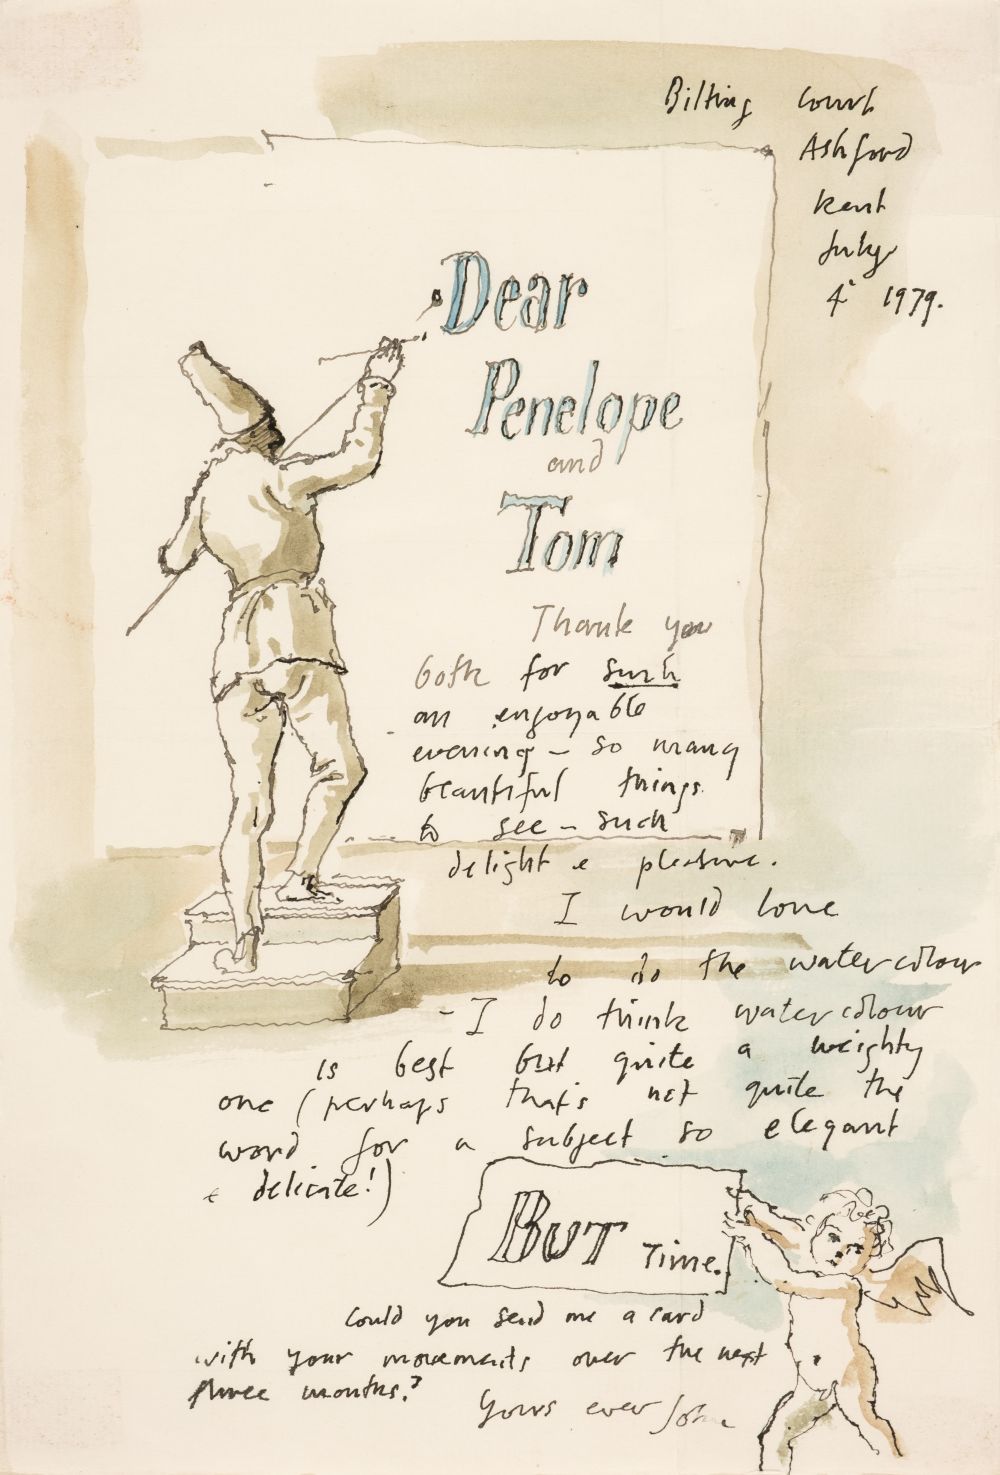 Bilting Court
Ashford
Kent
July
4 1979.
Dear
Penelope
and
Tom
Thank you
both for such
an enjoyable
evening – so many
beautiful things
to see – such
delight & pleasure.
I would love
to do the watercolour
- I do think watercolour
is best but quite a weighty
one (perhaps that's not quite the
word for a subject so elegant
& delicate!)
BUT Time.
Could you send me a card
with your movements over the next
three months?
Yours ever John